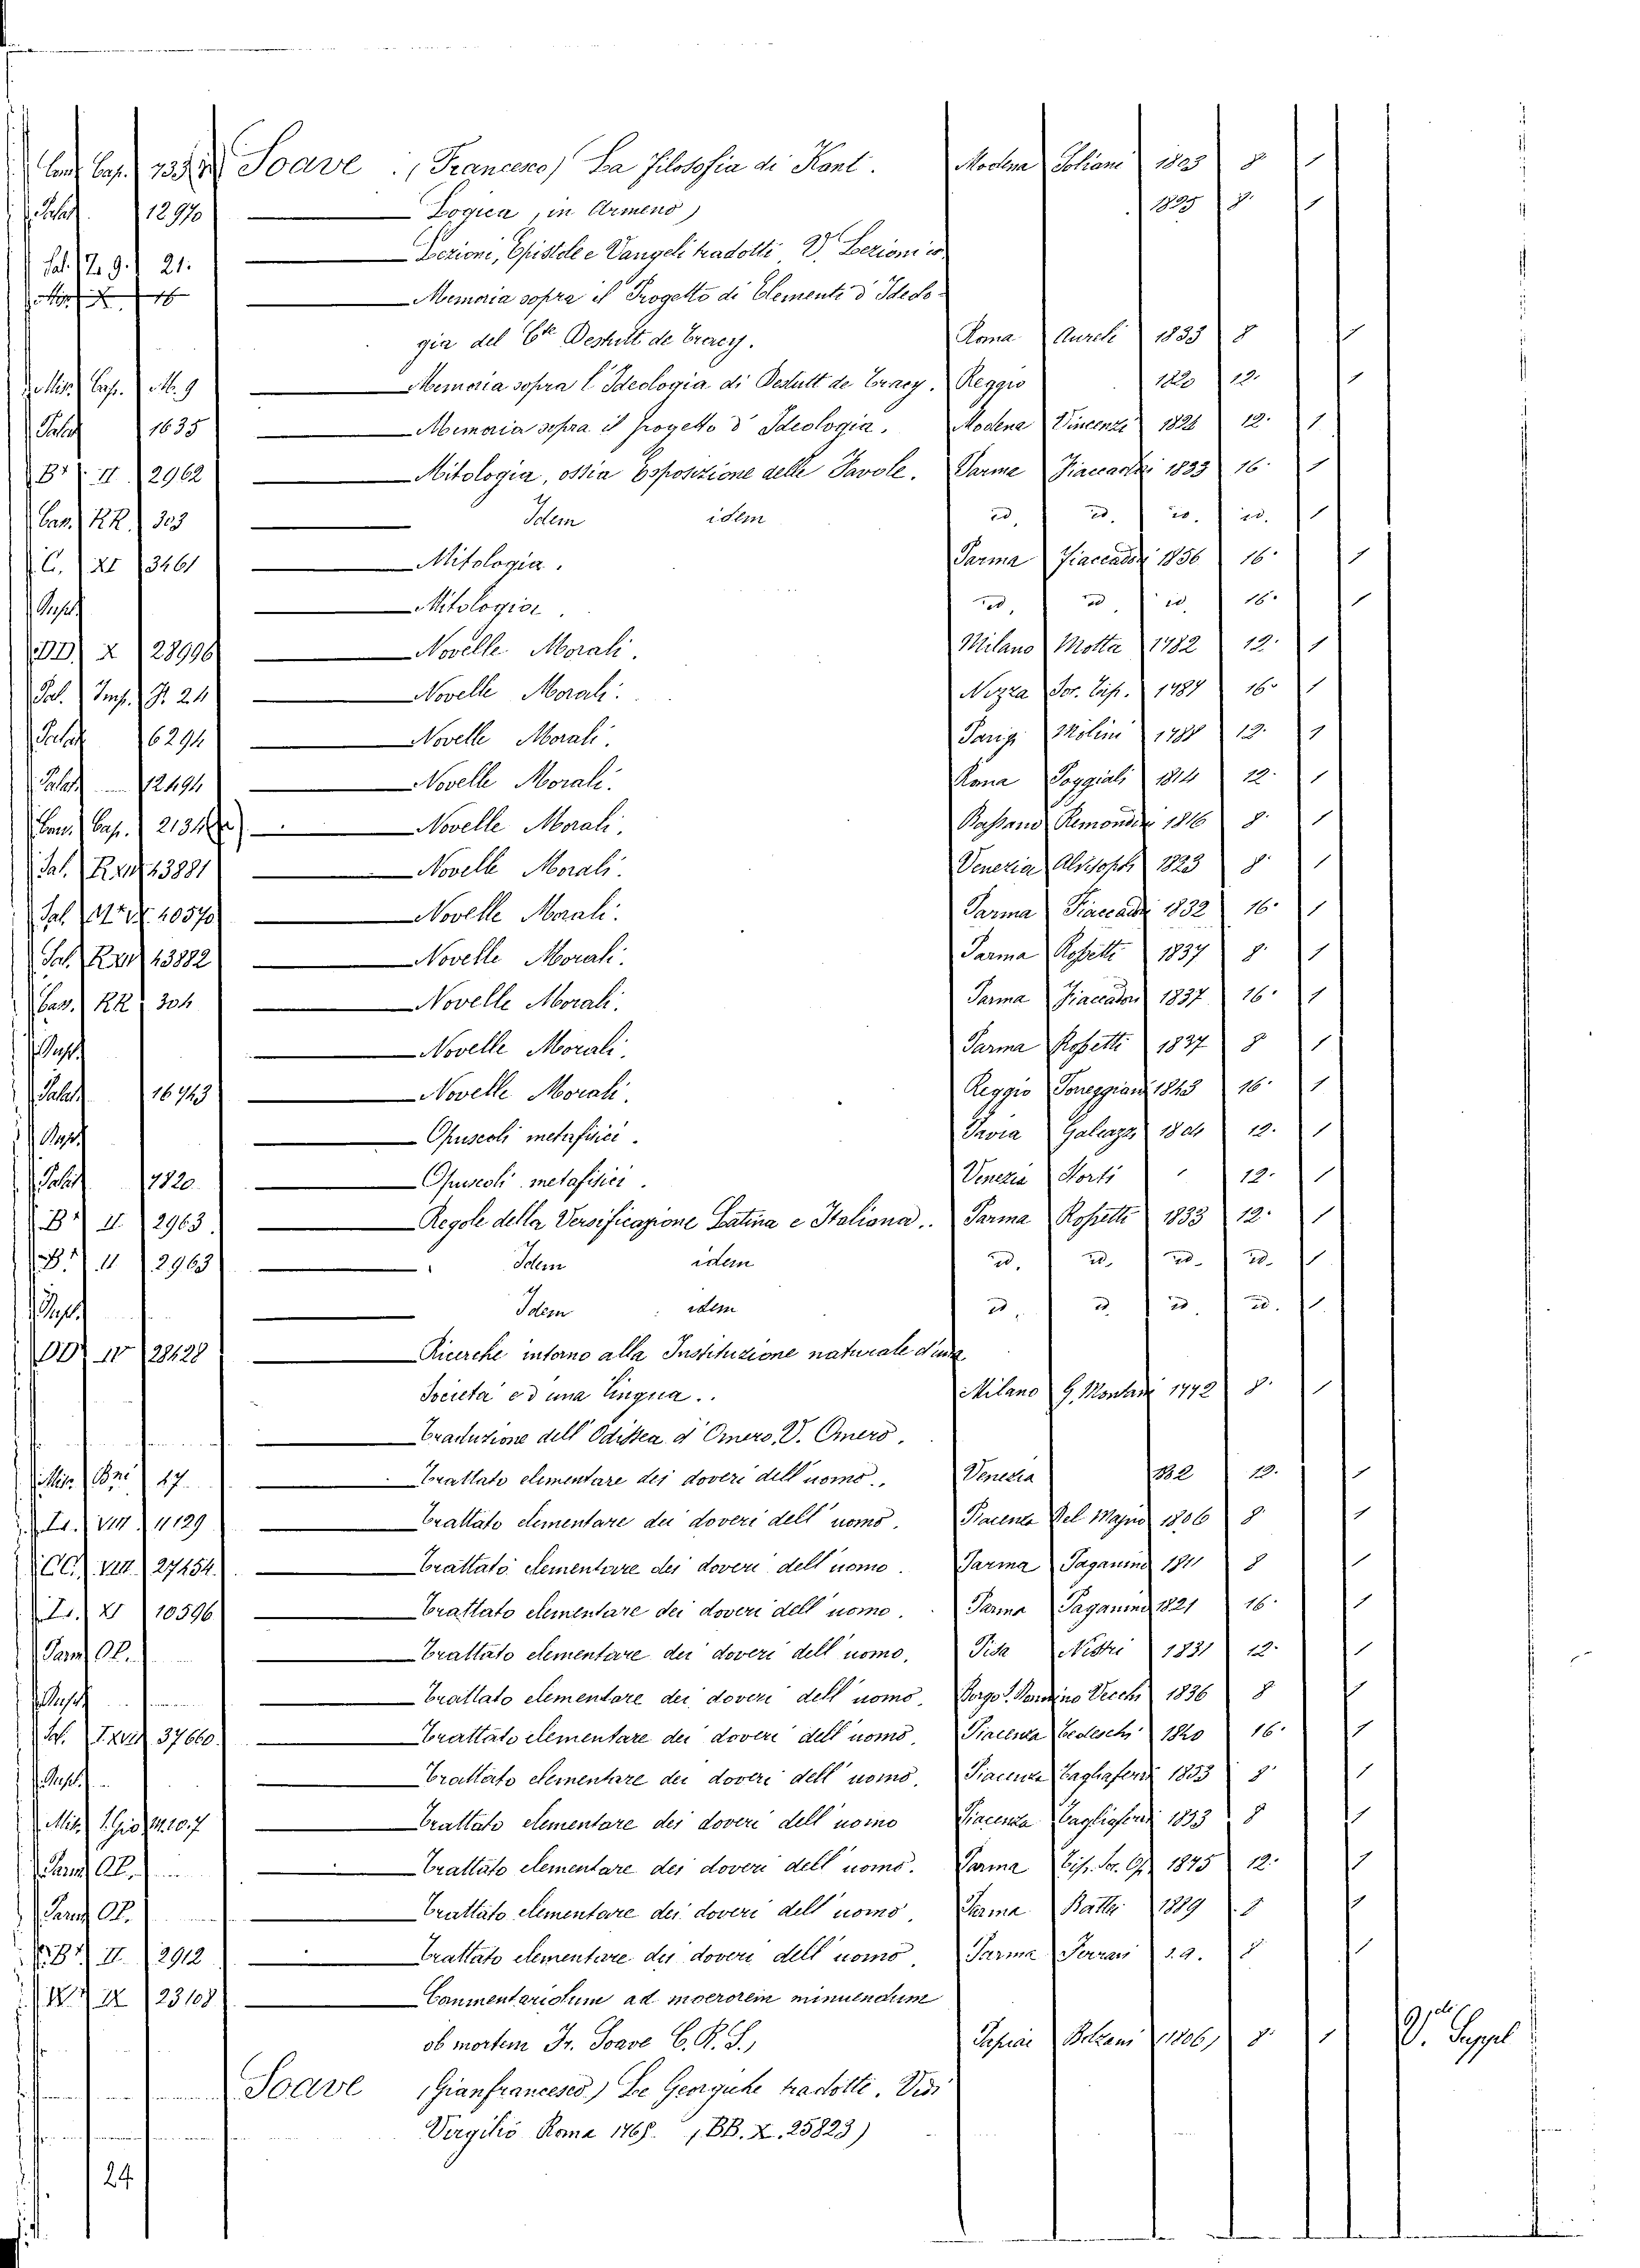 Soave (Francesco) La Filosofia di Kant. Modena Soliani 1803 8 1
Palat. 12970 Logica, in Armeno) 1825 8. 1
Sal. 21. Lezioni, Epistole e Vangeli tradotti V. Lezioni
Memoria sopra il Progetto di Elementi d'Ideolo-
gia del Destutt de Tracy. Roma Aureli 1833 8 1
Memoria sopra l'Ideologia di Destutt de Tracy. Reggio 1820 12. 1
Palat 1635 Memoria sopra il progetto d'Ideologia. Modena Vincenzi 1821 12. 1
B II 2962 Mitologia, ossia esposizione delle Favole. Parma Fiaccadori 1833 16. 1
RR. 303 Idem idem id. id. id. id. 1
C. XI 3461 Mitologia. Parma Fiaccadori 1836 16. 1
Mitologia. id. id. id. 16. 1
DD X 28996 Novelle Morali. Milano Motta 1782 12. 1
Novelle Morali. Nizza Soc. Tip. 1787 16. 1
Palat 6294 Novelle Morali. Parigi Molini 1788 12. 1
Palat 12494 Novelle Morali. Roma Poggiali 1814 12. 1
Cap. 2134 Novelle Morali. Bassano Remondini 1816 8. 1
Sal. 43881 Novelle Morali. Venezia Alvisopoli 1823 8. 1
Sal. 40570 Novelle Morali. Parma Fiaccadori 1832 16. 1
Sal. 43882 Novelle Morali. Parma Rossetti 1837 8. 1
RR 304 Novelle Morali. Parma Fiaccadori 1837 16. 1
Novelle Morali. Parma Rossetti 1837 8 1
Palat. 16743 Novelle Morali. Reggio Torreggiani 1843 16. 1
Opuscoli metafisici. Pavia Galeazzi 12. 1
Palat 7820. Opuscoli metafisici. Venezia Storti 12. 1
B II 2963. Regole della Versificazione Latina e Italiana. Parma Rossetti 1833 12. 1
B II 2963 Idem idem id. id. id. id. 1
Idem idem id. id. id. id. 1
DD IV 28428 Ricerche intorno alla Instituzione naturale d'una
Società e d'una lingua. Milano G. Montani 1772 8. 1
Traduzione dell'Odissea d'Omero, V. Omero.
47. Trattato elementare dei doveri dell'uomo. Venezia 12. 1
VIII 4129 Trattato elementare dei doveri dell'uomo. Piacenza Del Majno 1806 8 1
CC. VIII 27454. Trattato elementare dei doveri dell'uomo. Parma Paganino 1811 8 1
XI 10596 Trattato elementare dei doveri dell'uomo. Parma Paganino 1821 16. 1
Parm. Op. Trattato elementare dei doveri dell'uomo. Pisa Nistri 1831 12. 1
Trattato elementare dei doveri dell'uomo. Borgo S. Donnino Vecchi 1836 8 1
37660. Trattato elementare dei doveri dell'uomo. Piacenza Tedeschi 1840 16. 1
Trattato elementare dei doveri dell'uomo. Piacenza Tagliaferri 1853 8. 1
Trattato elementare dei doveri dell'uomo Piacenza Tagliaferri 1853 8 1
Parm. Op. Trattato elementare dei doveri dell'uomo. Parma Tip. Soc. Op. 1875 12. 1
Parm. Op. Trattato elementare dei doveri dell'uomo. Parma Battei 1889 8 1
B II 2912 Trattato elementare dei doveri dell'uomo. Parma Ferrari s.a. 8 1
IX 23108 Commentariolum ad moerorem minuendum
ob mortem Fr. Soave C. R. S., Papiae Bolzani (1806) 8. 1 V. Suppl
Soave (Gianfrancesco) Le Georgiche tradotte. Vedi
Virgilio Roma 1765. (BB. X. 25823)
24